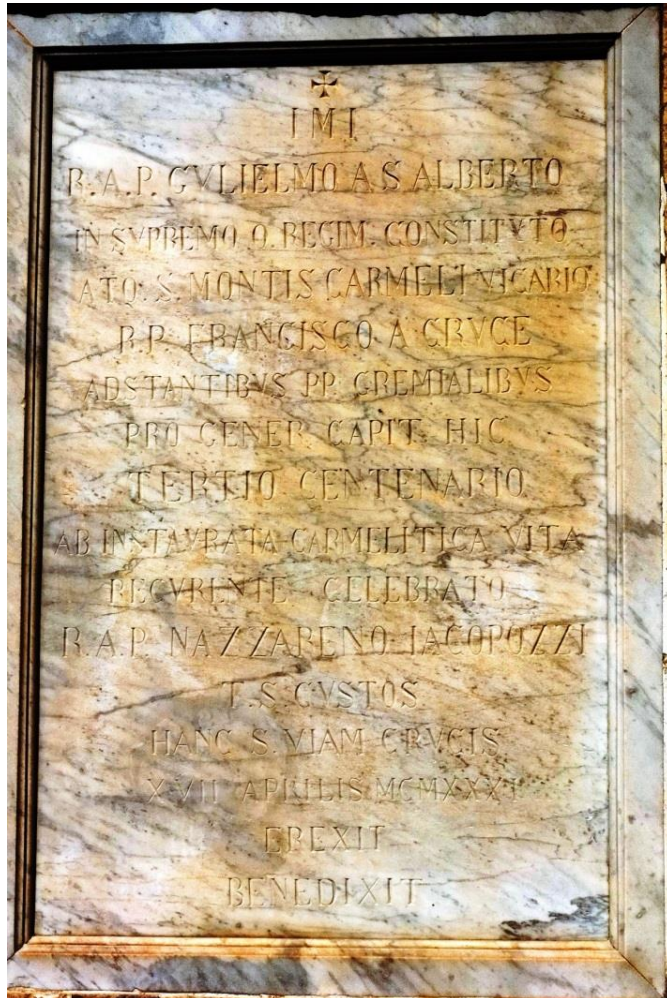 ✠
IMI
R.A.P. GVLIELMO A S ALBERTO
IN SVPREMO O. REGIM. CONSTITVTO
ATQ. S. MONTIS CARMELI VICARIO
R.P. FRANCISCO A CRVCE
ADSTANTIBVS PP. GREMIALIBVS
PRO GENER. CAPIT. HIC
TERTIO CENTENARIO
AB INSTAVRATA CARMELITICA VITA
RECVRENTE CELEBRATO
R.A.P. NAZZARENO IACOPOZZI
T.S. CVSTOS
HANC S. VIAM CRVCIS
XVII APRILIS MCMXXXI
EREXIT
BENEDIXIT